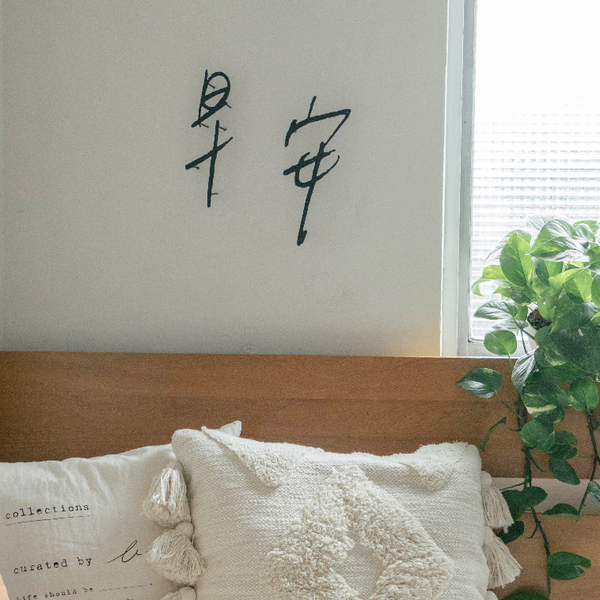 早安
collections
curated by
life should be